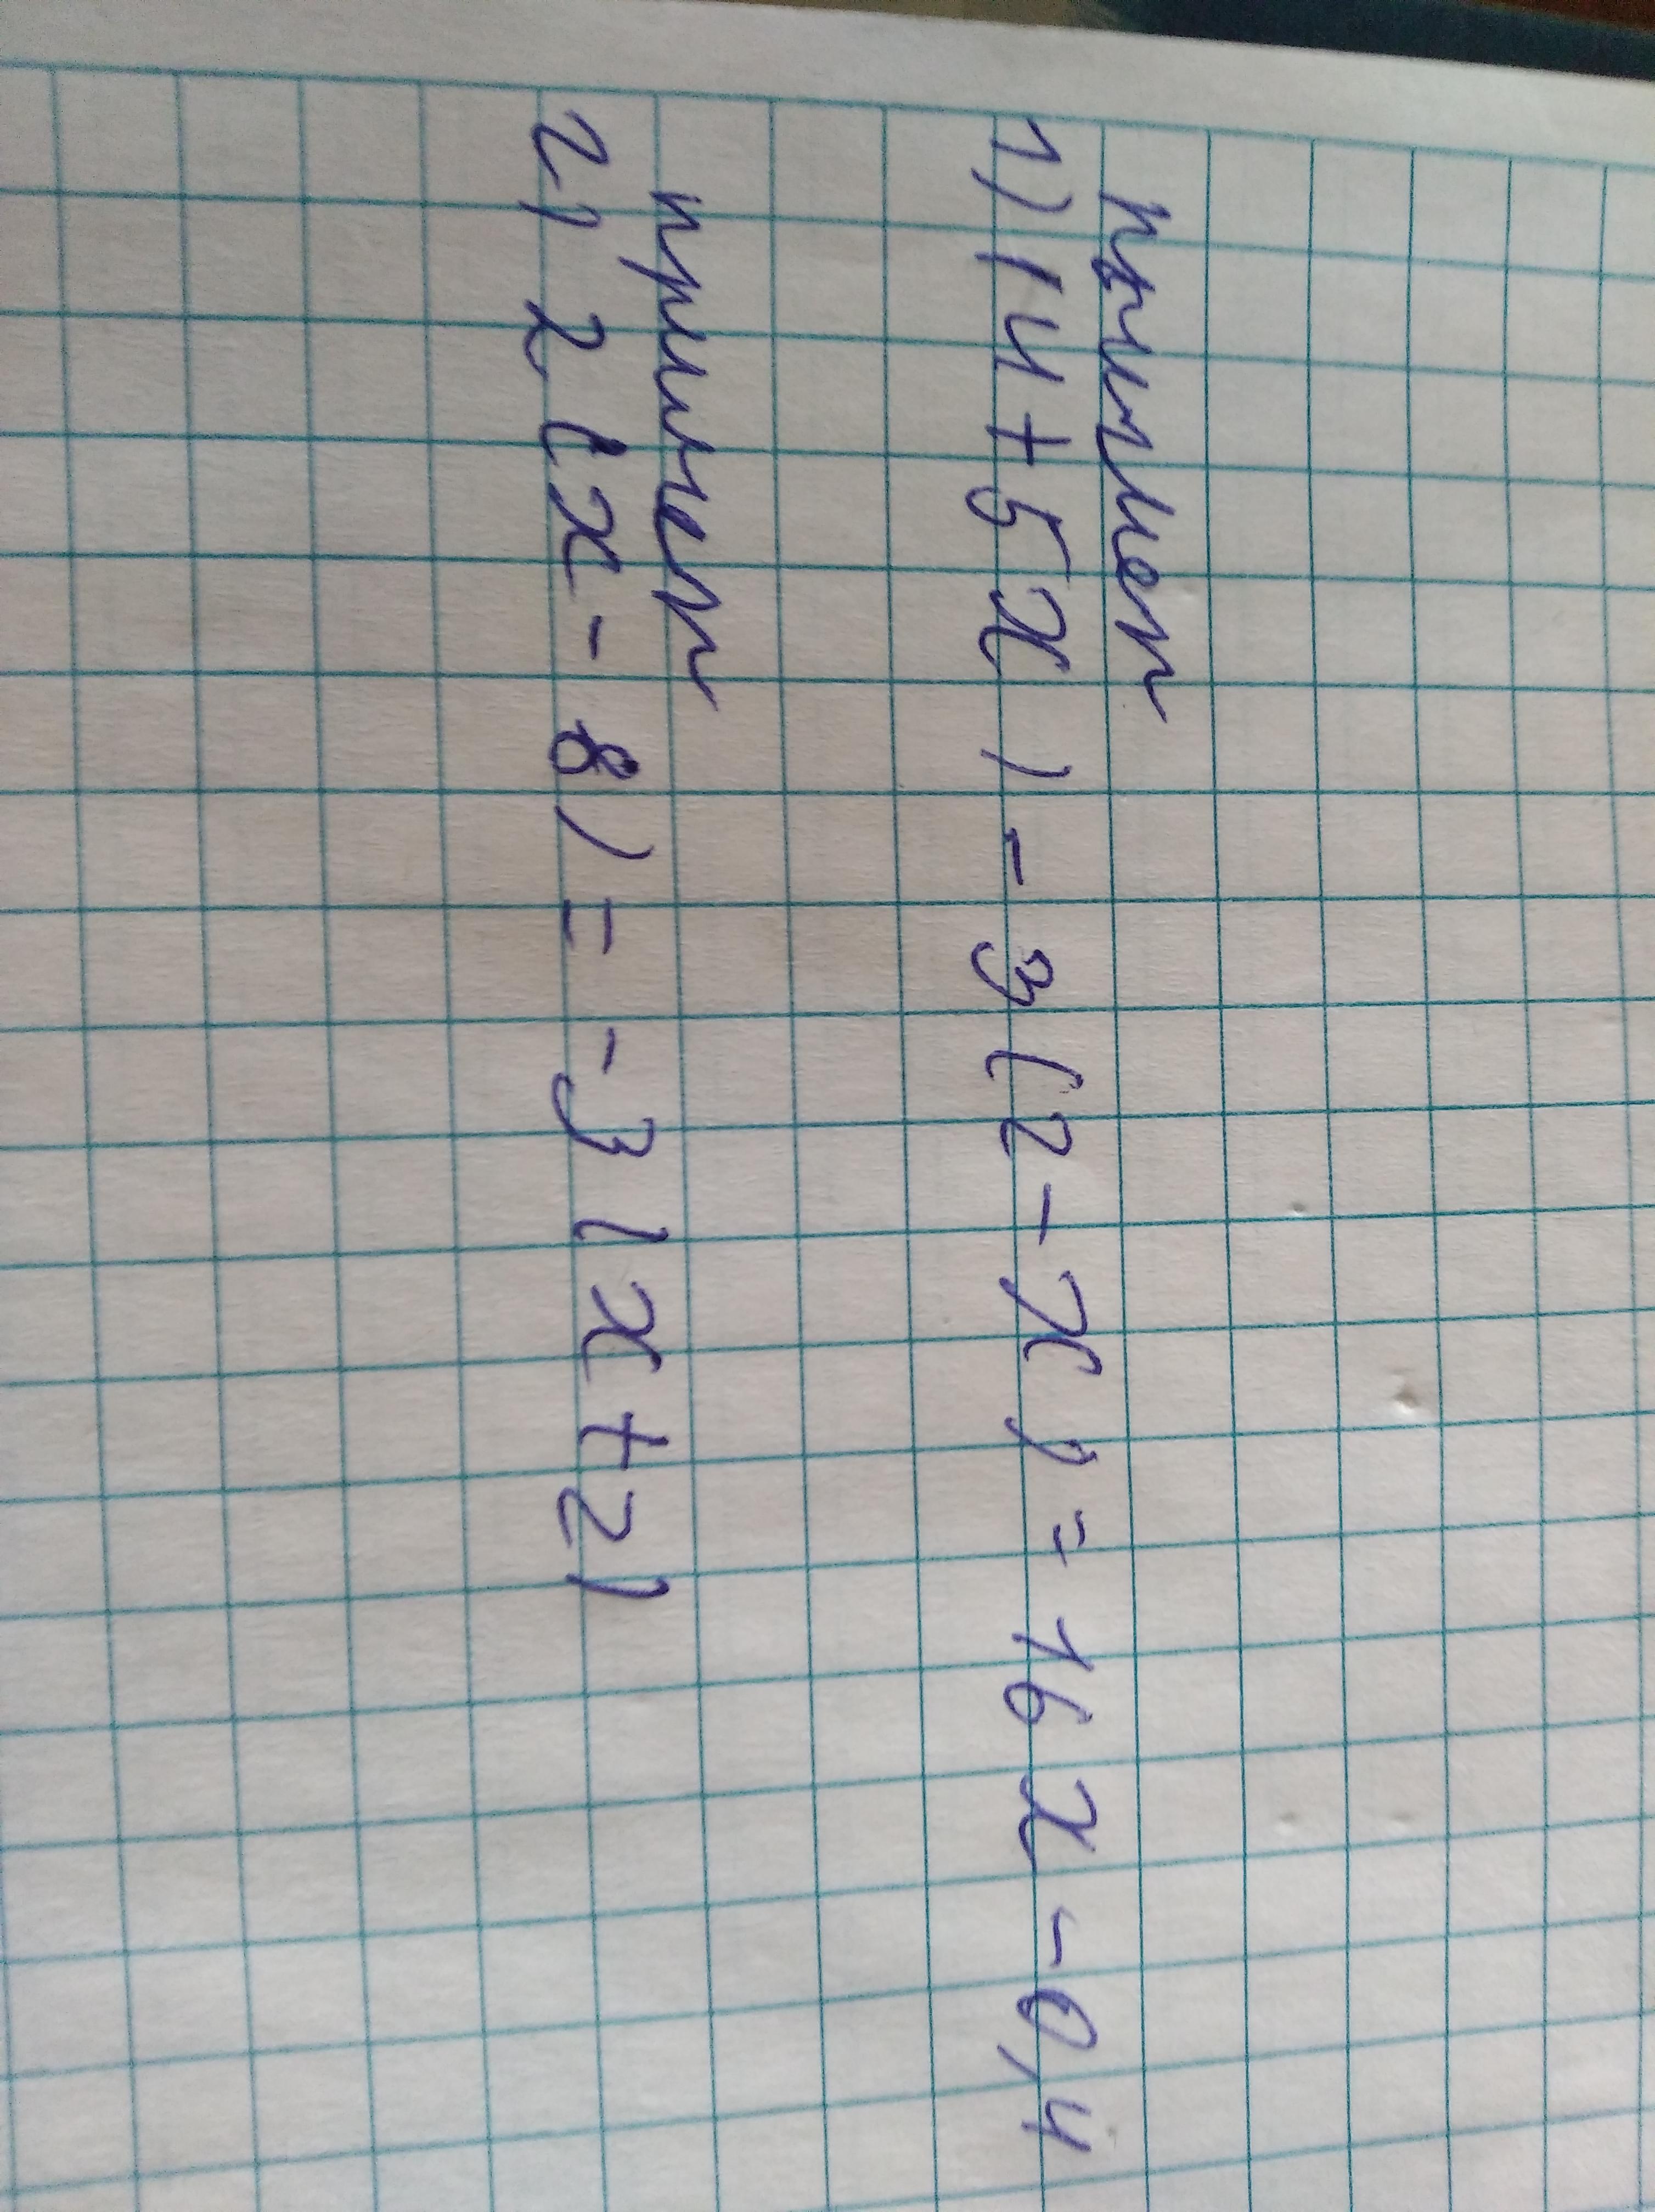 пример
1) (4+5x) - 3(2-x) = 16x - 0,4
пример
2) 2(x-8) = -3(x+2)